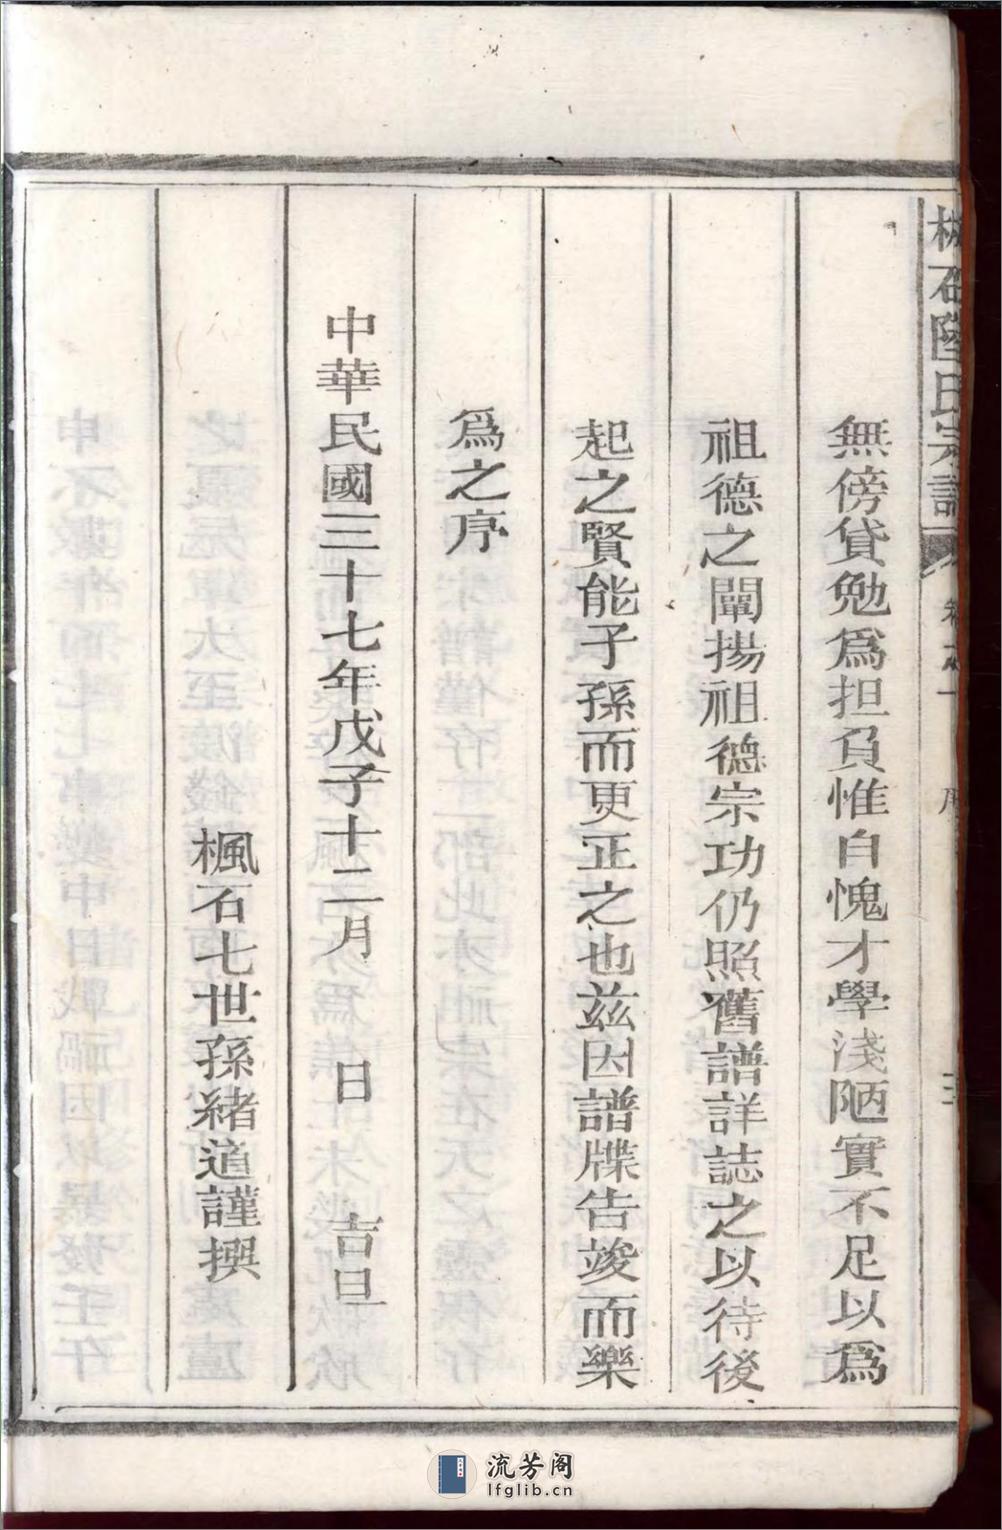 陸氏宗譜
無傍貸勉爲担負惟自愧才學淺陋實不足以爲
祖德之闡揚祖德宗功仍照舊譜詳誌之以待後
起之賢能子孫而更正之也茲因譜牒告竣而樂
爲之序
中華民國三十七年戊子十二月 日 吉旦
楓石七世孫緒道謹撰
流芳阁
lfglib.cn